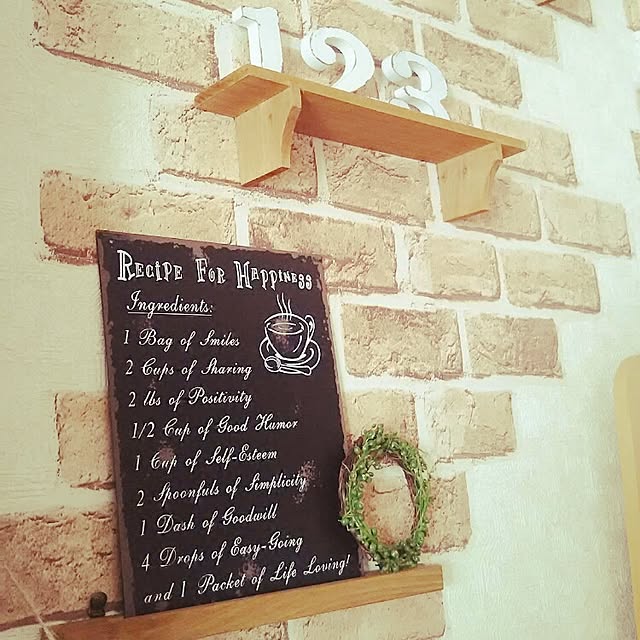 123
Recipe For Happiness
Ingredients:
1 Bag of Smiles
2 Cups of Sharing
2 lbs of Positivity
1/2 Cup of Good Humor
1 Cup of Self-Esteem
2 Spoonfuls of Simplicity
1 Dash of Goodwill
4 Drops of Easy-Going
and 1 Packet of Life Loving!